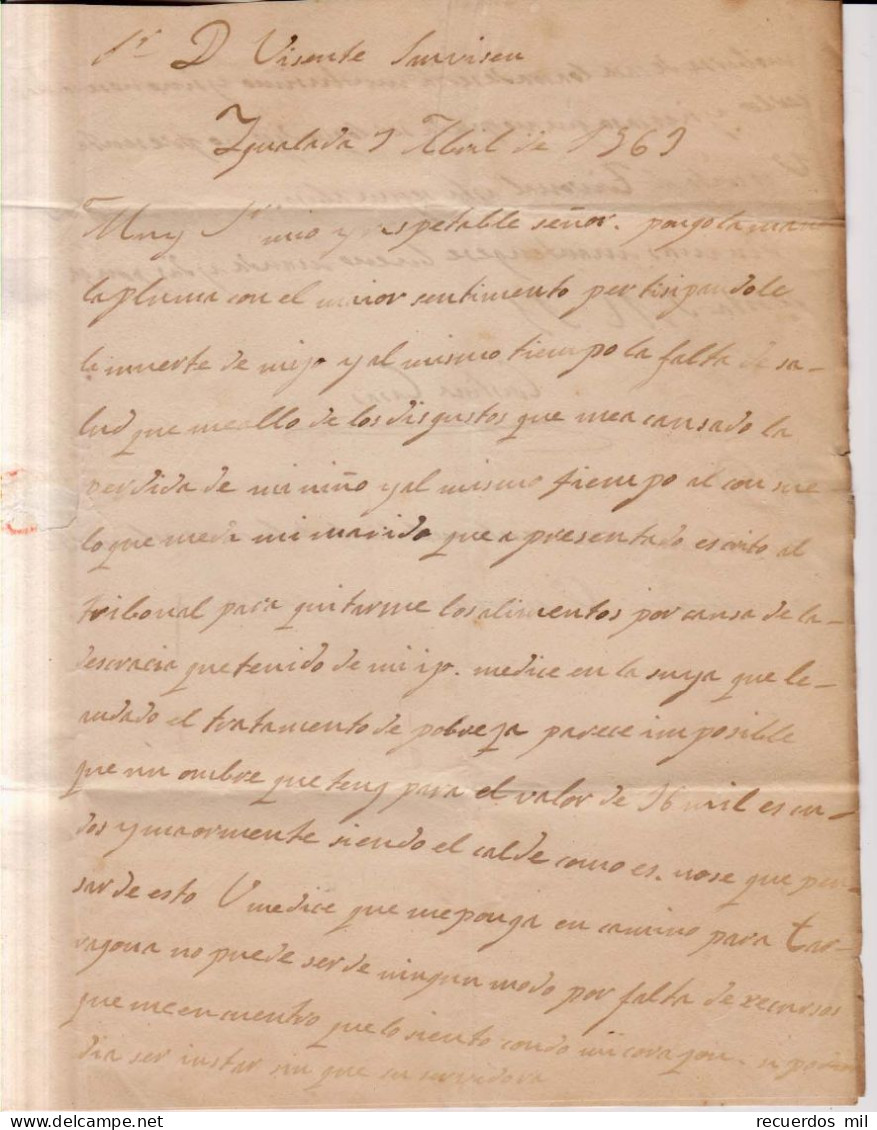 Sr D Visente
Igualada 9 Abril de 1869
Muy Sr mio y respetable señor. pongo la mano
la pluma con el maior sentimento pertisipandole
la muerte de mijo y al mismo tiempo la falta de sa-
lud que meallo de los disgustos que mea causado la
perdida de mi niño y al mismo tiempo al consue
lo que meda mi marido que a presentado escrito al
tribonal para quitarme los alimentos por causa de la
descracia que tenido de mi ijo. medice en la suya que le-
andado el tratamento de pobreza parece imposible
que un ombre que teng para el valor de 16 mil escu-
dos y maormente siendo el calde como es. nose que pen-
sar de esto V medice que meponga en camino para tar-
ragona no puede ser de ningun modo por falta de recursos
que me encuentro que lo siento condo mi corazon. si podria
dia ser instar sin que su servidora
recuerdos mil